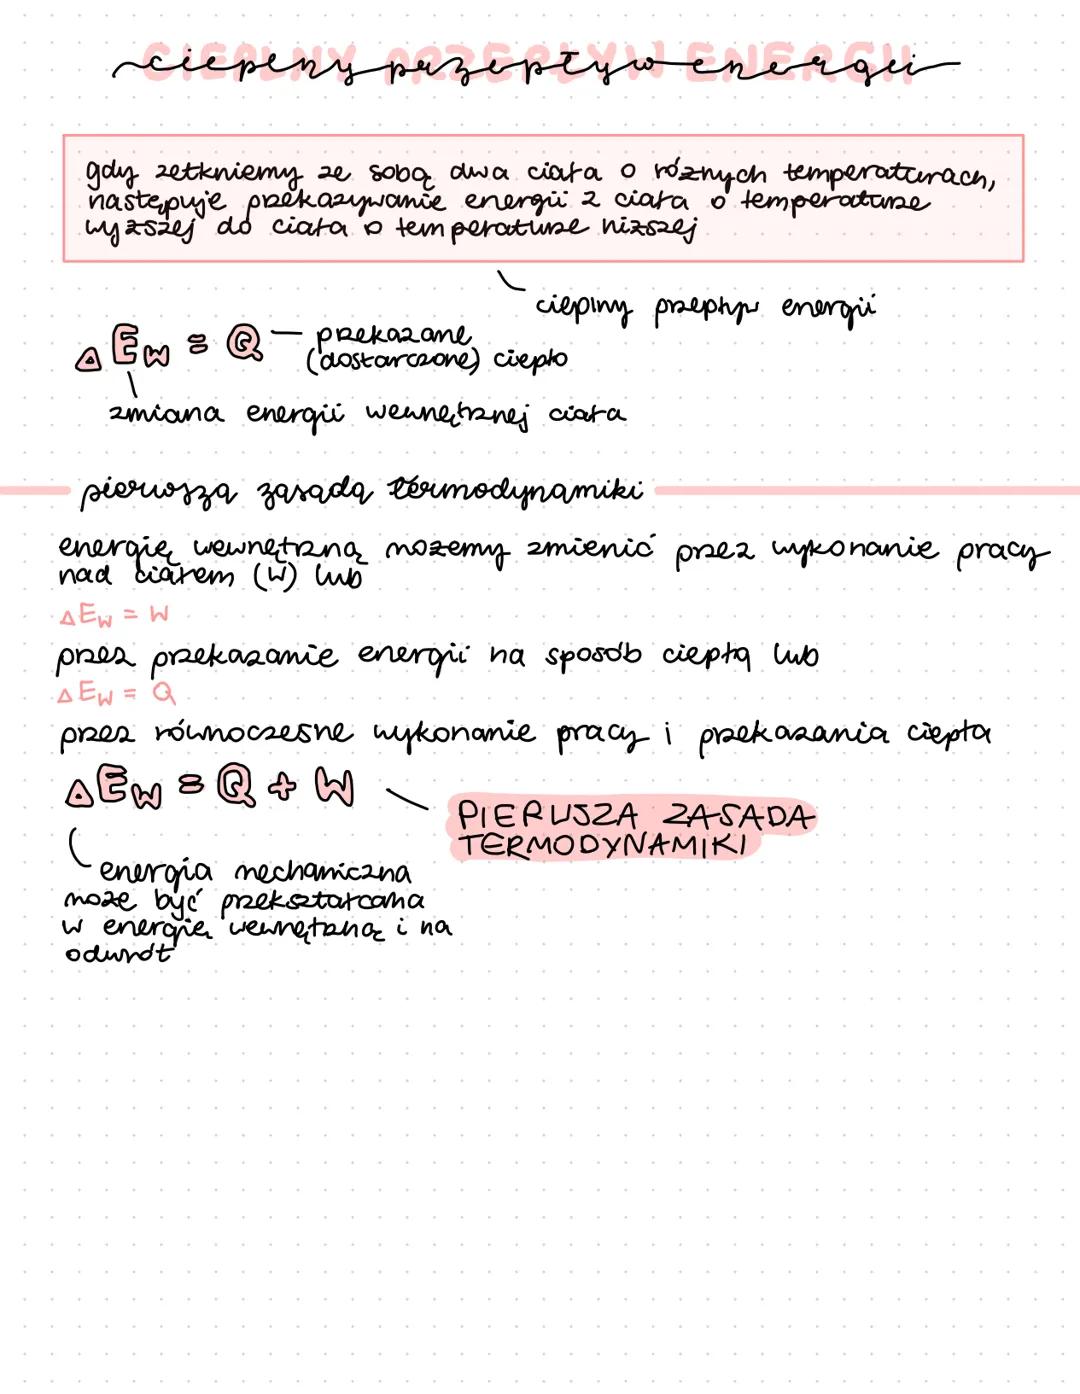 CIEPLNY PRZEPŁYW ENERGII
cieplny przepływ energii
gdy zetkniemy ze sobą dwa ciała o różnych temperaturach,
następuje przekazywanie energii z ciała o temperaturze
wyższej do ciała o temperaturze niższej
cieplny przepływ energii
△ Ew = Q
przekazane
(dostarczone) ciepło
zmiana energii wewnętrznej ciała
pierwsza zasada termodynamiki
energię wewnętrzną możemy zmienić przez wykonanie pracy
nad ciałem (W) lub
△Ew = W
przez przekazanie energii na sposób ciepła lub
△Ew = Q
przez równoczesne wykonanie pracy i przekazania ciepła
△Ew = Q + W
PIERWSZA ZASADA
TERMODYNAMIKI
energia mechaniczna
może być przekształcana
w energię wewnętrzną i na
odwrót